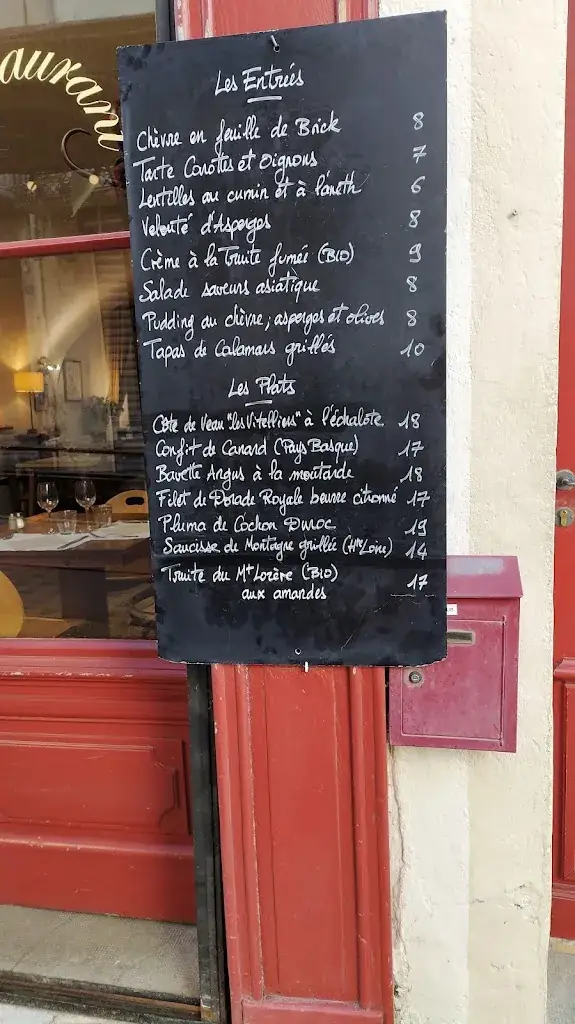 aurant
Les Entrées
Chèvre en feuille de Brick 8
Tarte Carottes et Oignons 7
Lentilles au cumin et à l'aneth 6
Velouté d'Asperges 8
Crème à la Truite fumée (BIO) 9
Salade saveurs asiatique 8
Pudding au chèvre, asperges et olives 8
Tapas de Calamars grillés 10
Les Plats
Côte de Veau "les Vitelliers" à l'échalote 18
Confit de Canard (Pays Basque) 17
Bavette Angus à la moutarde 18
Filet de Dorade Royale beurre citronné 17
Pluma de Cochon Duroc 19
Saucisse de Montagne grillée (Hte Loire) 14
Truite du Mt Lozère (BIO) 17
aux amandes